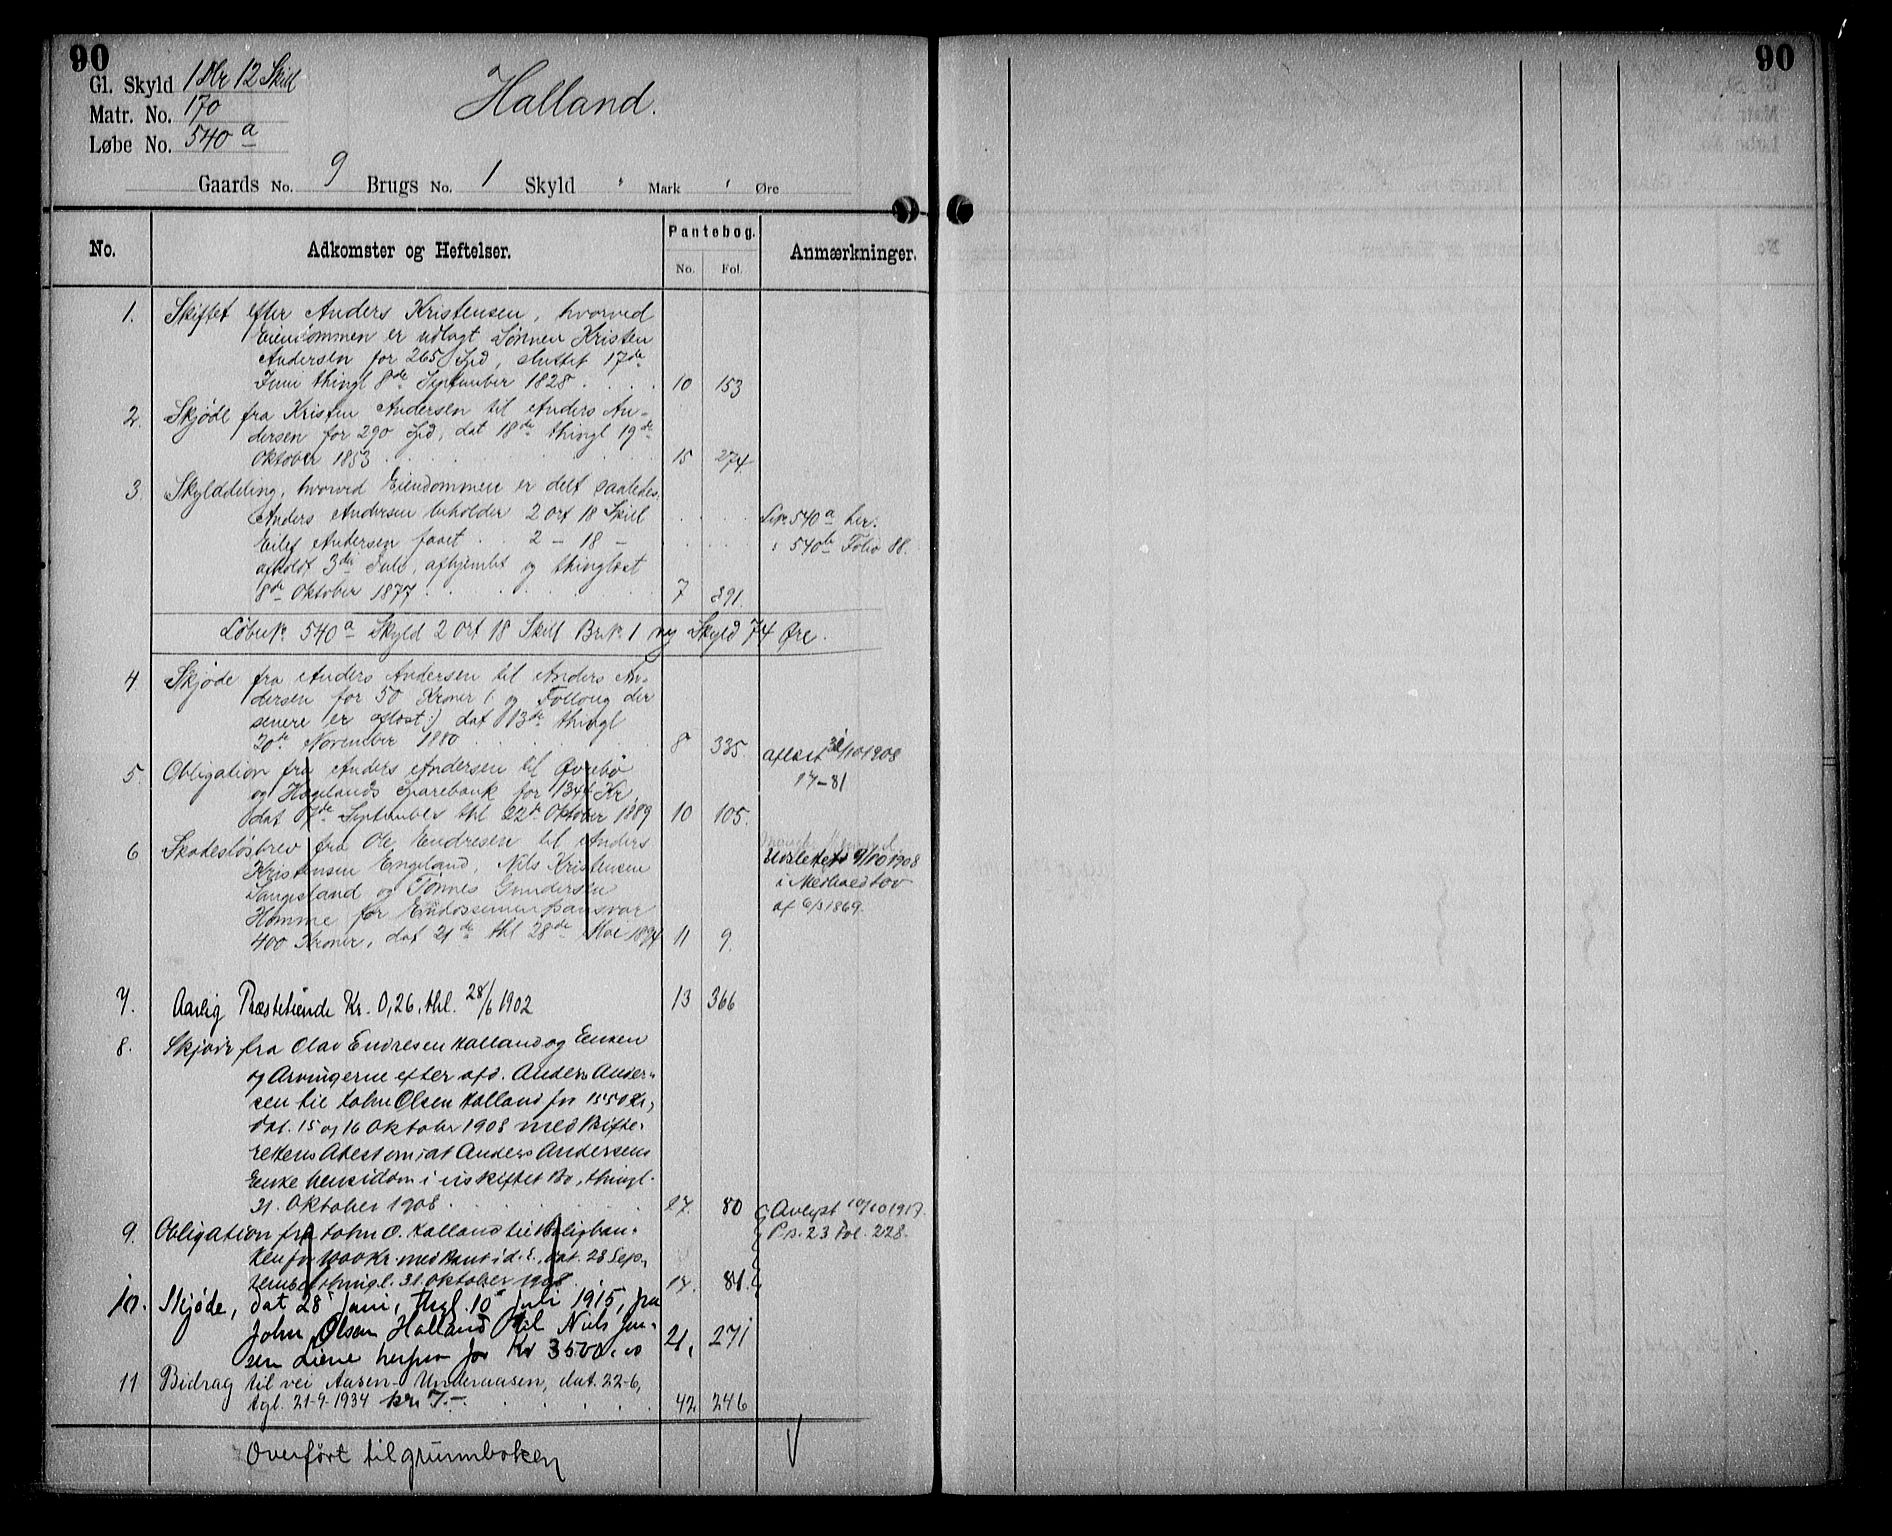 90
90
Gl. Skyld 1 Dlr 12 Skill
Matr. No. 170
Løbe No. 540 a
Halland.
Gaards No. 9 Brugs No. 1 Skyld , Mark , Øre
No. Adkomster og Heftelser. Pantebog. No. Fol. Anmærkninger.
1. Skiftet efter Anders Kristensen, hvorved
Eiendommen er udlagt Sønnen Kristen
Andersen for 265 Spd, sluttet 17de
Juni thingl 8de September 1828 . . . . 10 153
2. Skjøde fra Kristen Andersen til Anders An-
dersen for 290 Spd, dat 18de thingl 19de
Oktober 1853 . . . 15 274.
3. Skylddeling, hvorved Eiendommen er delt saaledes.
Anders Andersen beholder 2 ort 18 Skill . . . Lbn. 540 a her.
Eilef Andersen faaet . . 2 - 18 - . . . " 540 b Folio 88.
afholdt 3die Juli, afhjemlet og thinglæst
8de Oktober 1877 . . . 7 391.
Løbe N. 540 a Skyld 2 ort 18 Skill Br.N. 1 ny Skyld 74 Øre.
4. Skjøde fra Anders Andersen til Anders An-
dersen for 50 Kroner (: og Folloug der
senere er afløst :) dat 13de thingl
20de November 1880 . . . 8 335.
5. Obligation fra Anders Andersen til Øvrebø
og Hægelands Sparebank for 1344 Kr.
dat 7de September thl 22de Oktober 1889 10 105.
Aflæst 31/10 1908
17-81
6 Skadesløsbrev fra Ole Endresen til Anders
Kristensen Engeland, Nils Kristensen
Langeland og Tønnes Gundersen
Homme for Endossementsansvar
400 Kroner, dat 21de thl 28de Mai 1894 11 9.
Udslettet 9/10 1908
i Medhold Lov
af 6/3 1869.
7. Aarlig Præstetiende Kr. 0,26, thl. 28/6 1902 13 366
8. Skjøde fra Olav Endresen Halland og Enken
og Arvingerne efter afd. Anders Ander-
sen til John Olsen Halland for 1550 Kr,
dat. 15 og 16 Oktober 1908 med Skifte-
rettens Atest om at Anders Andersens
Enke hensidder i uskiftet Bo, thingl.
31. Oktober 1908. . . . 17. 80
9. Obligation fra John O. Halland til Boligban-
ken for 1000 Kr. med Pant i d. E., dat. 28 Sep-
tember thingl. 31. Oktober 1908. 17. 81.
Avlyst 10/10 1917.
P.B. 23 Fol. 228.
10. Skjøde, dat 28 Juni, thgl. 10 Juli 1915, fra
John Olsen Halland til Niels Jen-
sen Liene herpaa for Kr 3500.00 21. 271
11 Bidrag til vei Aasen-Underaasen, dat. 22-6,
tgl. 21-9-1934 kr. 7.- . . . 42 246
Overført til grunnboken V